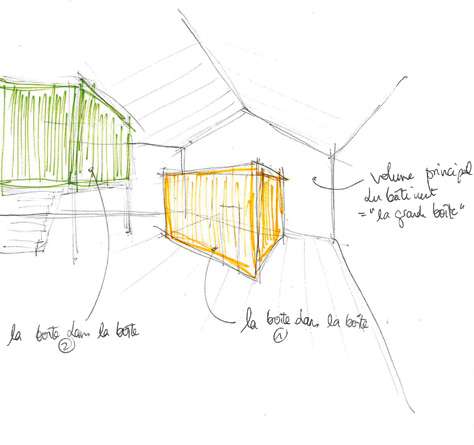 volume principal
du bâtiment
= "la grande boîte"
la boîte dans la boîte
2
la boîte dans la boîte
1